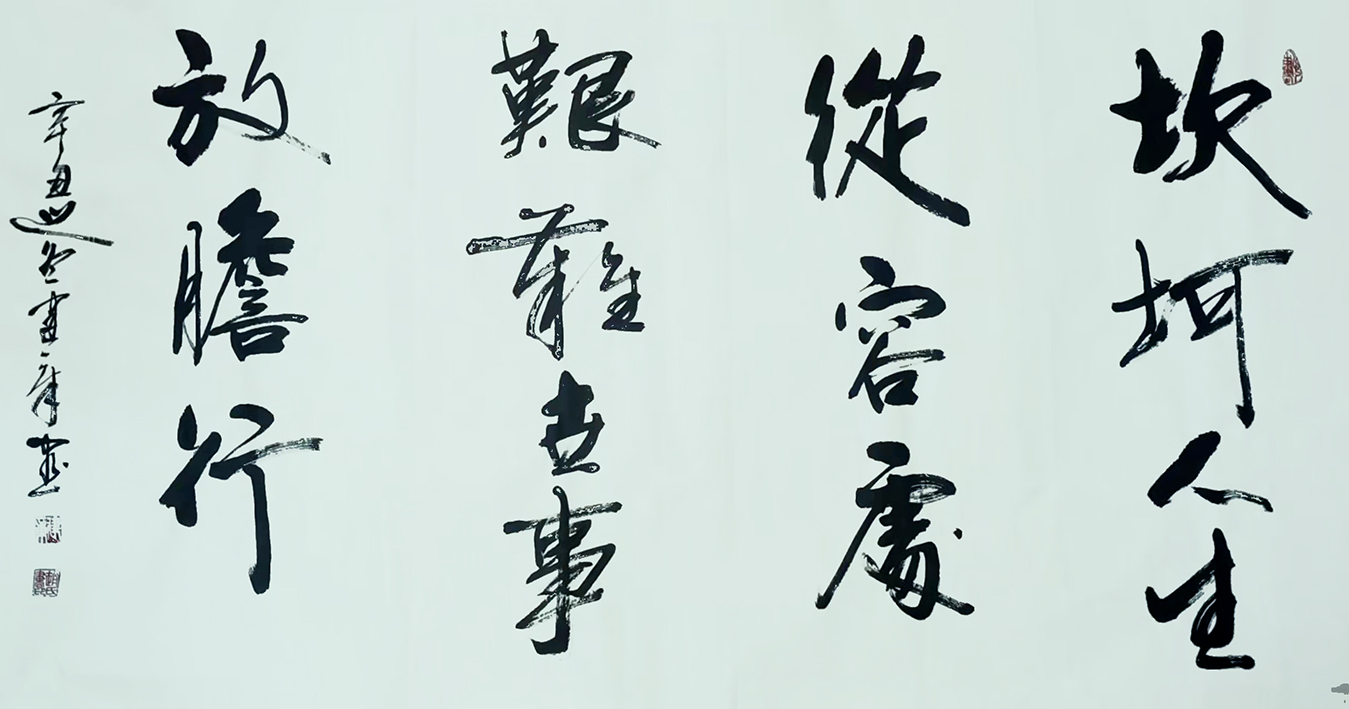 坎坷人生
從容處
艱難世事
放膽行
辛丑